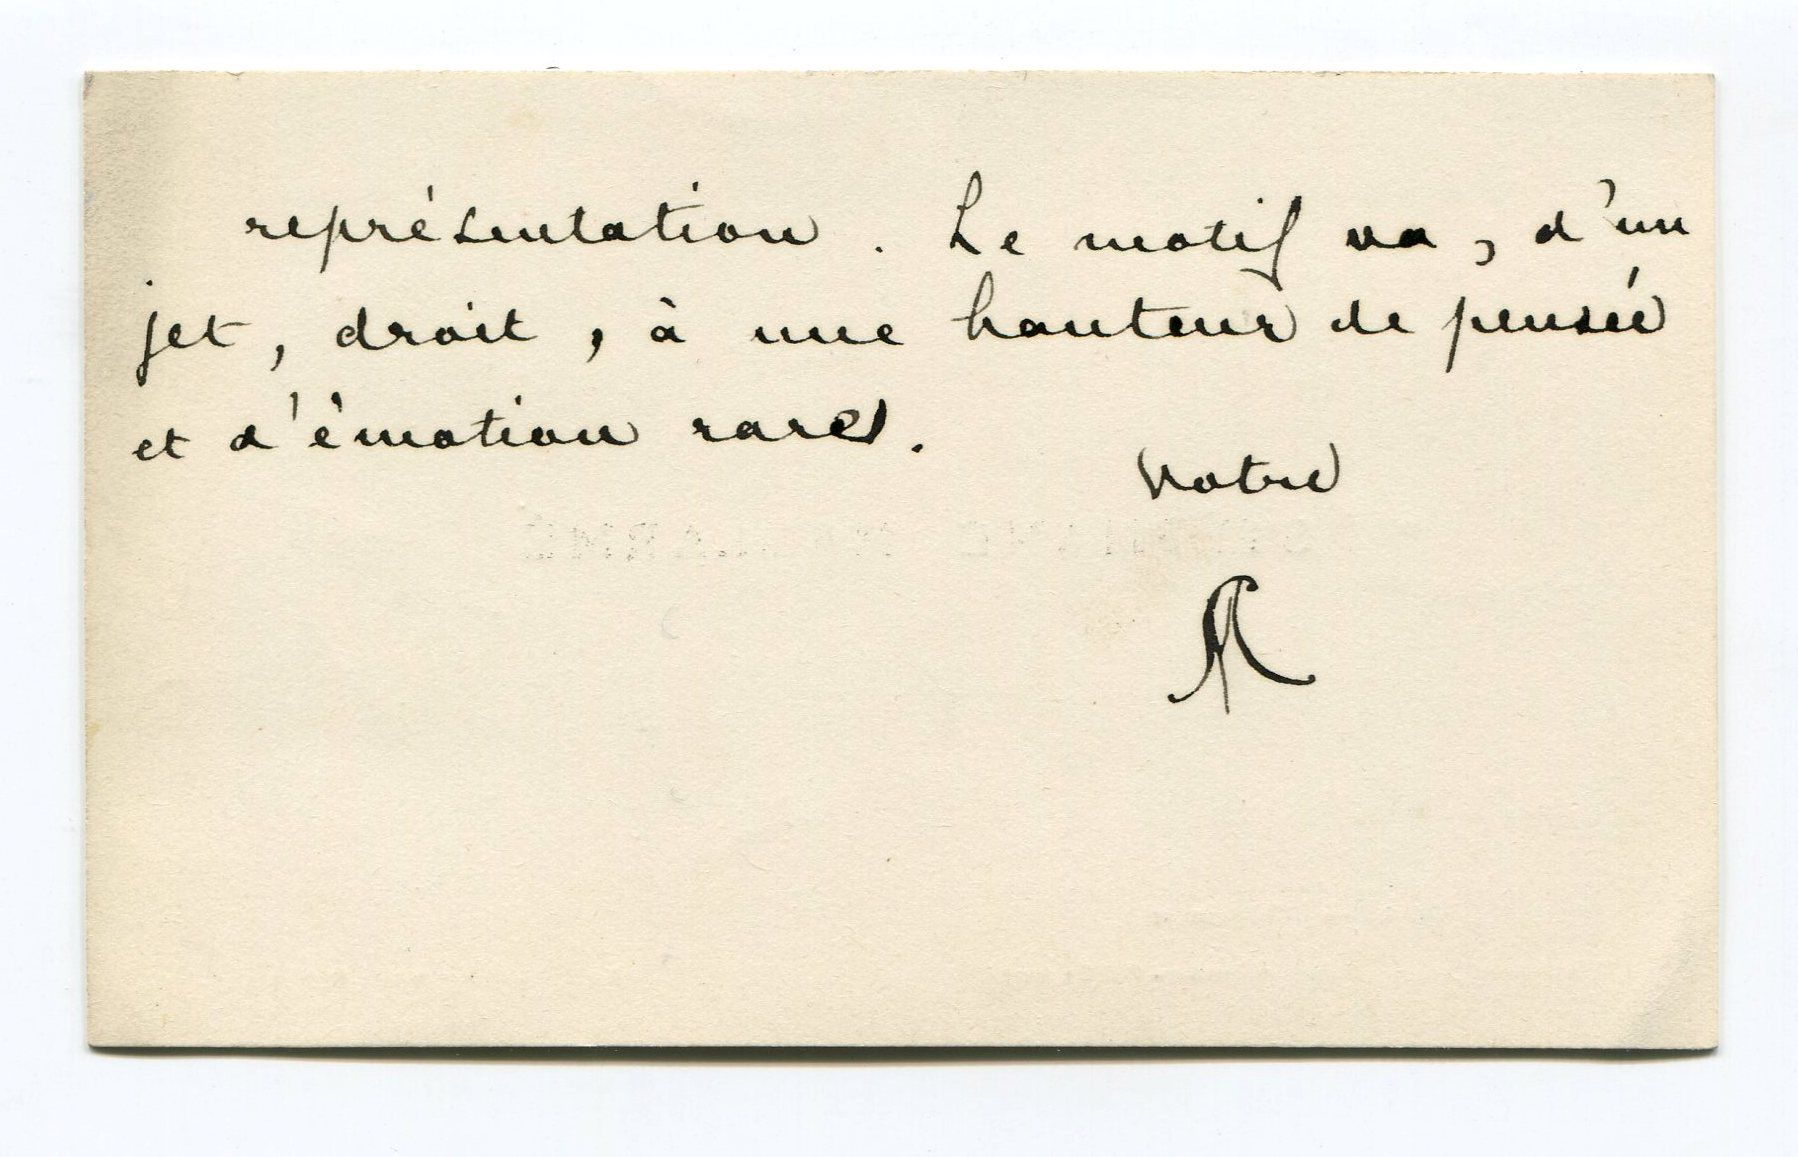 représentation. Le motif va, d'un
jet, droit, à une hauteur de pensée
et d'émotion rares.
Votre